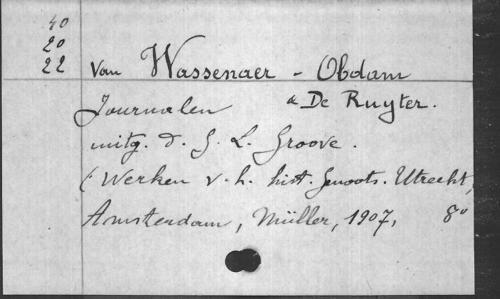 40
20
22
Van Wassenaer - Obdam
Journalen & De Ruyter.
uitg. d. G. L. Groove.
(Werken v. h. hist. Genoots. Utrecht,
Amsterdam, Müller, 1907, 8°